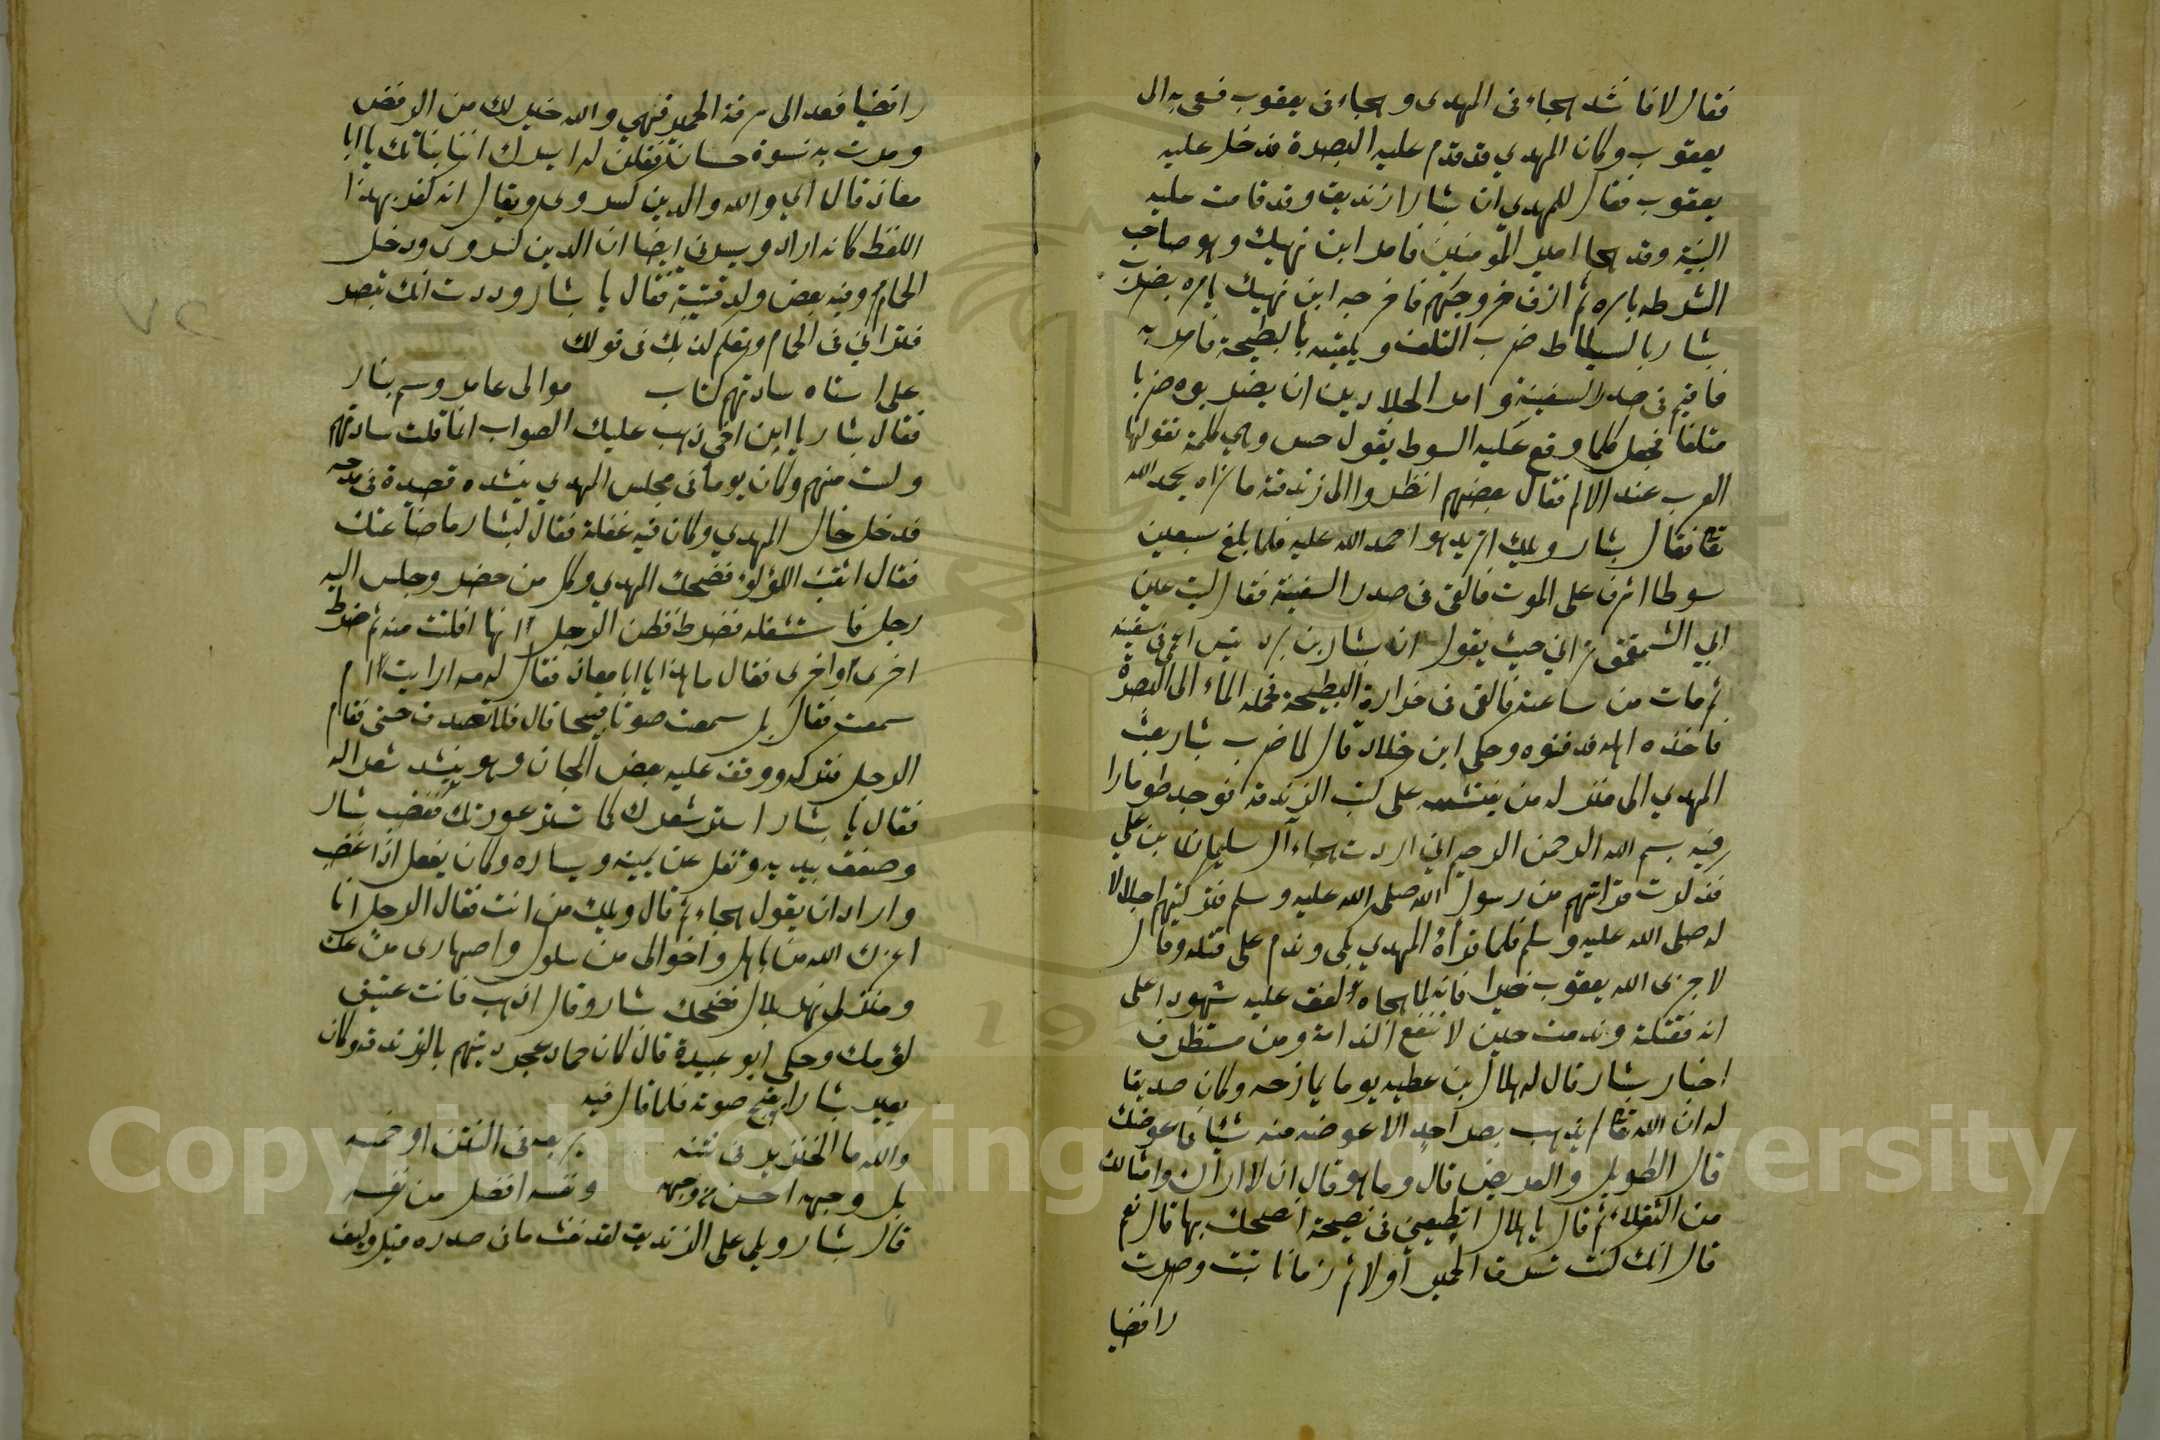 فقال لا فانشد هجاءه فى المهدى وهجاءه فى يعقوب فسعى به الى
يعقوب وكان المهدي قد قدم عليه البصرة فدخل عليه
يعقوب فقال للمهدي ان بشارا زنديق وقد قامت عليه
البينة وقد هجا امير المومنين فامر ابن نهيك وهو صاحب
الشرطه بامره ثم ازف خروجهم فاخرجه ابن نهيك بامره بضرب
بشار بالسياط ضرب التلف ويلقيه بالبطيحة فامر به
فاقيم فى صدر السفينة وامر الجلادين ان يضربوه ضربا
متلفا فجعل كلما وقع عليه السوط يقول حس وهي كلمة تقولها
العرب عند الالم فقال بعضهم انظروا الى زندقته ما نراه يحمد الله
تعا فقال بشار ويلك اثريد هو احمد الله عليه فلما بلغ سبعين
سوطا اشرف على الموت فالقى فى صدر السفينة فقال ليت عين
ابي الشمقمق تراني حيث يقول ان بشار بن برد تيس اعمى فى سفينه
ثم مات من ساعته فالقى فى خرارة البطيحة فحمله الماء الى البصرة
فاخذه اهله فدفنوه وحكى ابن خلاد قال لما ضرب بشار بعث
المهدي الى منزله من يفتشه على كتب الزندقة فوجد طومارا
فيه بسم الله الرحمن الرحيم اني اردت هجاء آل سليمان بن علي
فذكرت قرابتهم من رسول الله صلى الله عليه وسلم فتركتهم اجلالا
له صلى الله عليه وسلم فلما قرأه المهدي بكى وندم على قتله وقال
لا جزى الله يعقوب خيرا فانه لما هجاه لفق عليه شهودا على
انه فقتلته وندمت حين لا تنفع الندامة ومن مستظرف
اخبار بشار قال له هلال بن عطيه يوما يمازحه وكان صديقا
له ان الله تعا لم يذهب بصر احد الا عوضه منه شيئا فما عوضك
قال الطويل والعريض قال وما هو قال ان لا اراك وامثالك
من الثقلاء ثم قال يا هلال اتطيعني فى نصيحة انصحك بها قال نعم
قال انك كنت تسرق الحمير أولا ثم زمانا تبت وصرت
رافضيا
رافضيا فعد الى سرقة الحمير فهي والله خير لك من الرفض
ومرت به نسوة حسان فقلن له ايسرك اننا بناتك يا ابا
معاذ قال اي والله والدين كسروى ويقال انه كفر بهذا
اللفظ كانه اراد ويسرني ايضا ان الدين كسروى ودخل
الحمام وفيه بعض ولد قتيبة فقال يا بشار وددت انك تبصر
فتراني فى الحمام وتعلم كذبك فى قولك
على استاه سادتهم كتاب موالى عامر وسم بنار
فقال بشار يا ابن اخي ذهب عليك الصواب انما قلت سادتهم
ولست منهم وكان يوما فى مجلس المهدي ينشده قصيدة فى مدحه
فدخل خال المهدي وكان فيه غفلة فقال لبشار ما صناعتك
فقال اثقب اللؤلؤ فضحك المهدي وكل من حضر وجلس اليه
رجل فاستثقله فضرط فظن الرجل انها افلتت منه ثم ضرط
اخرى واخرى فقال ما هذا يا ابا معاذ فقال له مه ارايت ام
سمعت فقال بل سمعت صوتا قبيحا قال فلا تصدق حتى فقام
الرجل فتركه ووقف عليه بعض المجان وهو ينشد شعرا له
فقال يا بشار استر شعرك كما تستر عورتك فغضب بشار
وصفق بيديه وتفل عن يمينه ويساره وكان يفعل اذا غضب
واراد ان يقول هجاء ثم قال ويلك من انت فقال الرجل انا
اعزك الله من باهلة واخوالى من سلول واصهارى من عك
ومنزلى نهر بلال فضحك بشار وقال اذهب فانت عتيق
لؤمك وحكى ابو عبيدة قال كان حماد عجرد يتهم بالزندقه وكان
يعير بشارا بقبح صوته فلما قال فيه
والله ما الخنزير فى نتنه بربعه فى النتن او خمسه
بل وجهه احسن من وجهه ونفسه افضل من نفسه
قال بشار ويلي على الزنديق لقد نفث ما فى صدره قيل وكيف